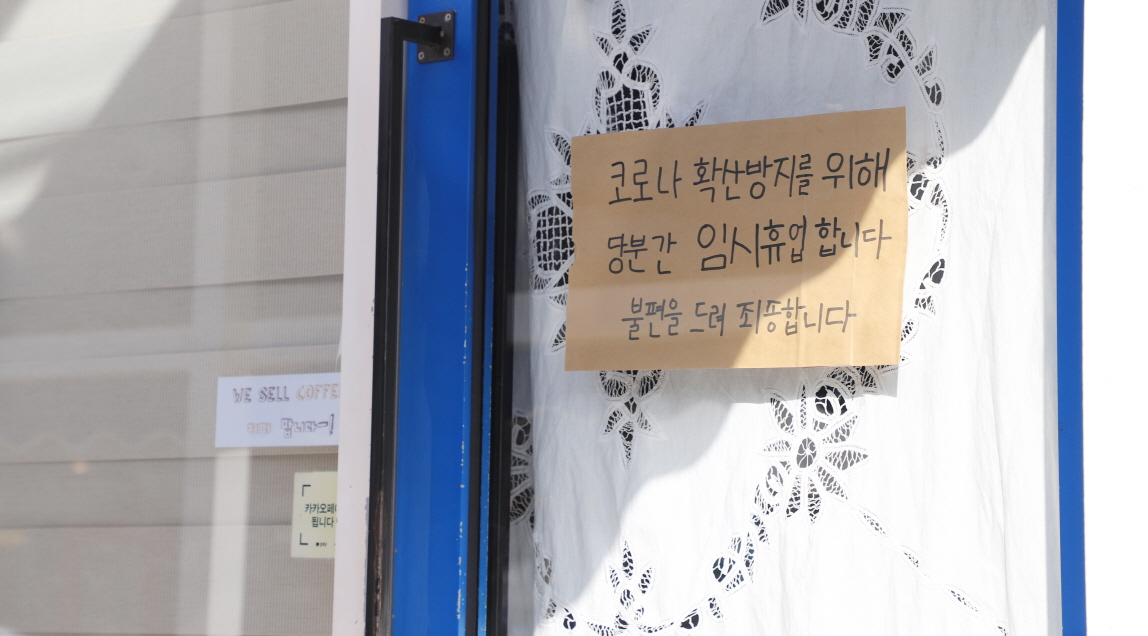 코로나 확산방지를 위해
당분간 임시휴업 합니다
불편을 드려 죄송합니다
WE SELL COFFE
팝니다~!
카카오페이
됩니다